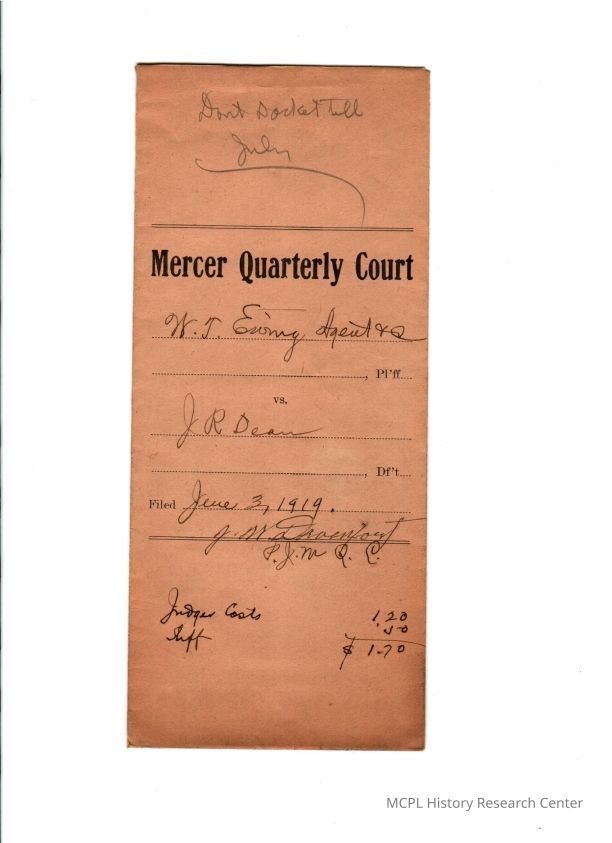 Don't Docket till
July
Mercer Quarterly Court
W. T. Ewing Agent &c
, Pl'ff.
vs.
J R Dean
, Df't.
Filed June 3, 1919.
J. W. Davenport
P. J. M Q. C.
Judges Costs 1.20
Shff .50
$ 1.70
MCPL History Research Center